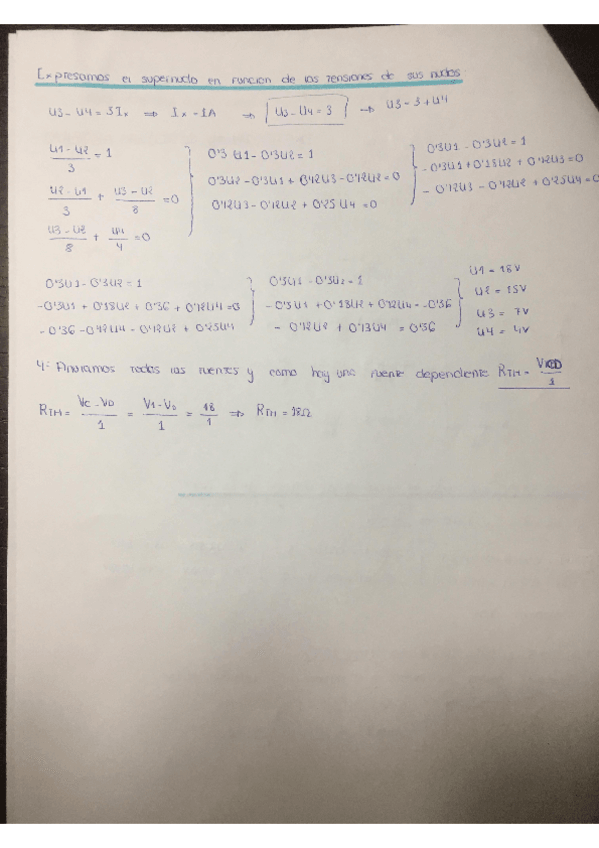 Expresamos el supernudo en funcion de las tensiones de sus nudos
U3 - U4 = 3Ix ⇒ Ix = 1A ⇒ U3 - U4 = 3 → U3 = 3 + U4
(U1 - U2)/3 = 1
(U2 - U1)/3 + (U3 - U2)/8 = 0
(U3 - U2)/8 + U4/4 = 0
0'3 U1 - 0'3U2 = 1
0'3U2 - 0'3U1 + 0'12U3 - 0'12U2 = 0
0'12U3 - 0'12U2 + 0'25 U4 = 0
0'3U1 - 0'3U2 = 1
- 0'3U1 + 0'18U2 + 0'12U3 = 0
- 0'12U3 - 0'12U2 + 0'25U4 = 0
0'3U1 - 0'3U2 = 1
-0'3U1 + 0'18U2 + 0'36 + 0'12U4 = 0
- 0'36 - 0'12U4 - 0'12U2 + 0'25U4
0'3U1 - 0'3U2 = 1
- 0'3U1 + 0'18U2 + 0'12U4 = -0'36
- 0'12U2 + 0'13U4 = 0'36
U1 = 18V
U2 = 15V
U3 = 7V
U4 = 4V
4: Anulamos todas las fuentes y como hay una fuente dependiente RTH = /1
RTH = (Vc - VD)/1 = (V1 - V0)/1 = 18/1 ⇒ RTH = 18Ω